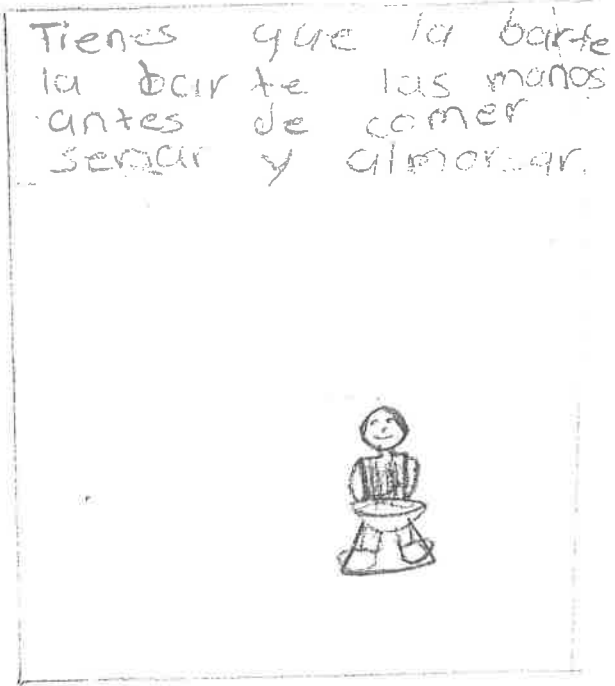 Tienes que la barte
la barte las manos
antes de comer
senar y almorsar.